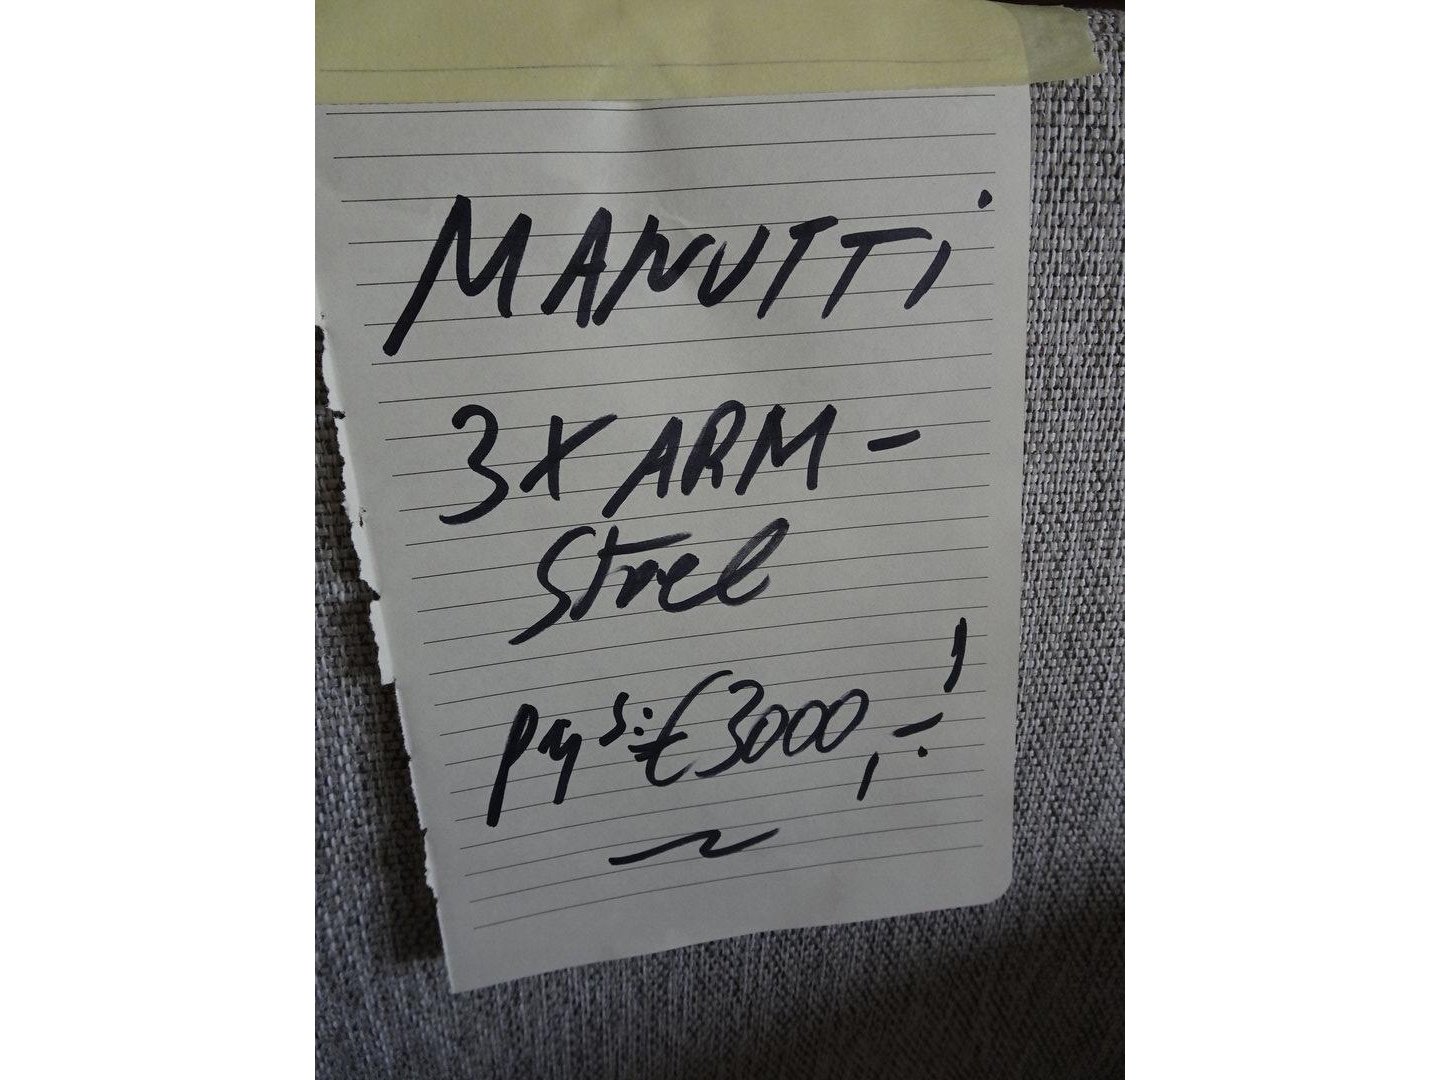 MANUTTI
3X ARM-
Stoel
prys: €3000,-!